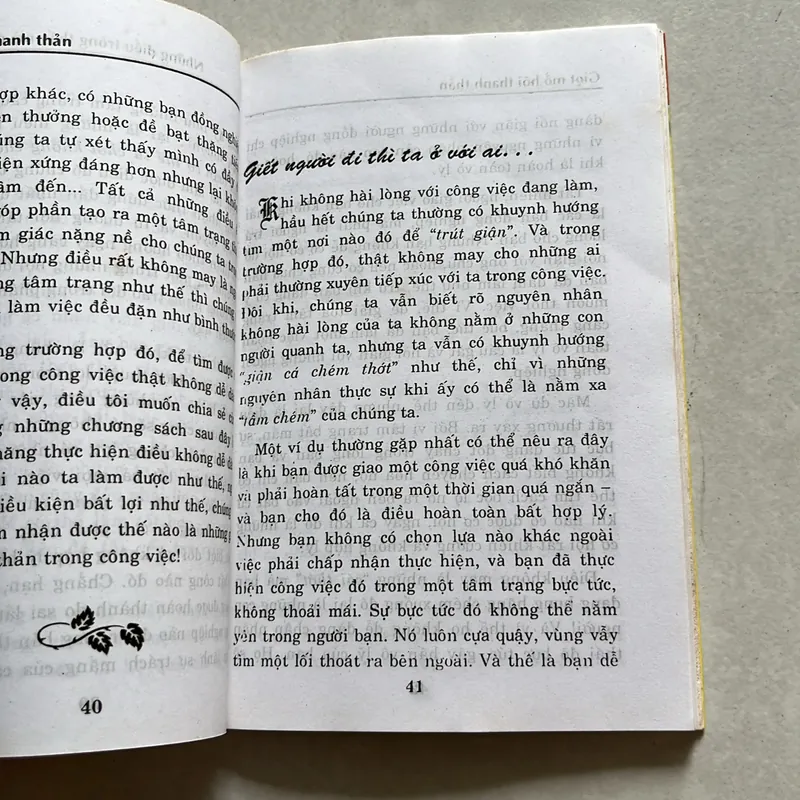 anh thản
ợp khác, có những bạn đồng
thưởng hoặc đề bạt thăng
ta tự xét thấy mình có đầy
iện xứng đáng hơn nhưng lại
đến... Tất cả những điều
phần tạo ra một tâm trạng
giác nặng nề cho chúng ta
Nhưng điều rất không may là
tâm trạng như thế thì chúng
làm việc đều đặn như bình
trường hợp đó, để tìm được
ong công việc thật không dễ
vậy, điều tôi muốn chia sẻ
những chương sách sau đây
năng thực hiện điều không dễ
nào ta làm được như thế,
iều kiện bất lợi như thế, chúng
nhận được thế nào là những
thản trong công việc!
40
Giết người đi thì ta ở với ai...
Khi không hài lòng với công việc đang làm,
hầu hết chúng ta thường có khuynh hướng
tìm một nơi nào đó để “trút giận”. Và trong
trường hợp đó, thật không may cho những ai
phải thường xuyên tiếp xúc với ta trong công việc.
Đôi khi, chúng ta vẫn biết rõ nguyên nhân
không hài lòng của ta không nằm ở những con
người quanh ta, nhưng ta vẫn có khuynh hướng
“giận cá chém thớt” như thế, chỉ vì những
nguyên nhân thực sự khi ấy có thể là nằm xa
“tầm chém” của chúng ta.
Một ví dụ thường gặp nhất có thể nêu ra đây
là khi bạn được giao một công việc quá khó khăn
và phải hoàn tất trong một thời gian quá ngắn –
và bạn cho đó là điều hoàn toàn bất hợp lý.
Nhưng bạn không có chọn lựa nào khác ngoài
việc phải chấp nhận thực hiện, và bạn đã thực
hiện công việc đó trong một tâm trạng bực tức,
không thoải mái. Sự bực tức đó không thể nằm
yên trong người bạn. Nó luôn cựa quậy, vùng vẫy
tìm một lối thoát ra bên ngoài. Và thế là bạn dễ
41